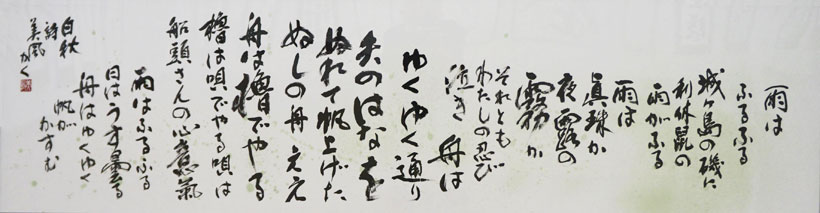 雨は
ふるふる
城ヶ島の磯に
利休鼠の
雨がふる
雨は
眞珠か
夜露の
霧か
それとも
わたしの忍び
泣き 舟は
ゆくゆく通り
矢のはなを
ぬれて帆上げた
ぬしの舟 ええ
舟は櫓でやる
櫓は唄でやる唄は
船頭さんの心意氣
雨はふるふる
日はうす曇る
舟はゆくゆく
帆が
かすむ
白秋
詩
美風かく